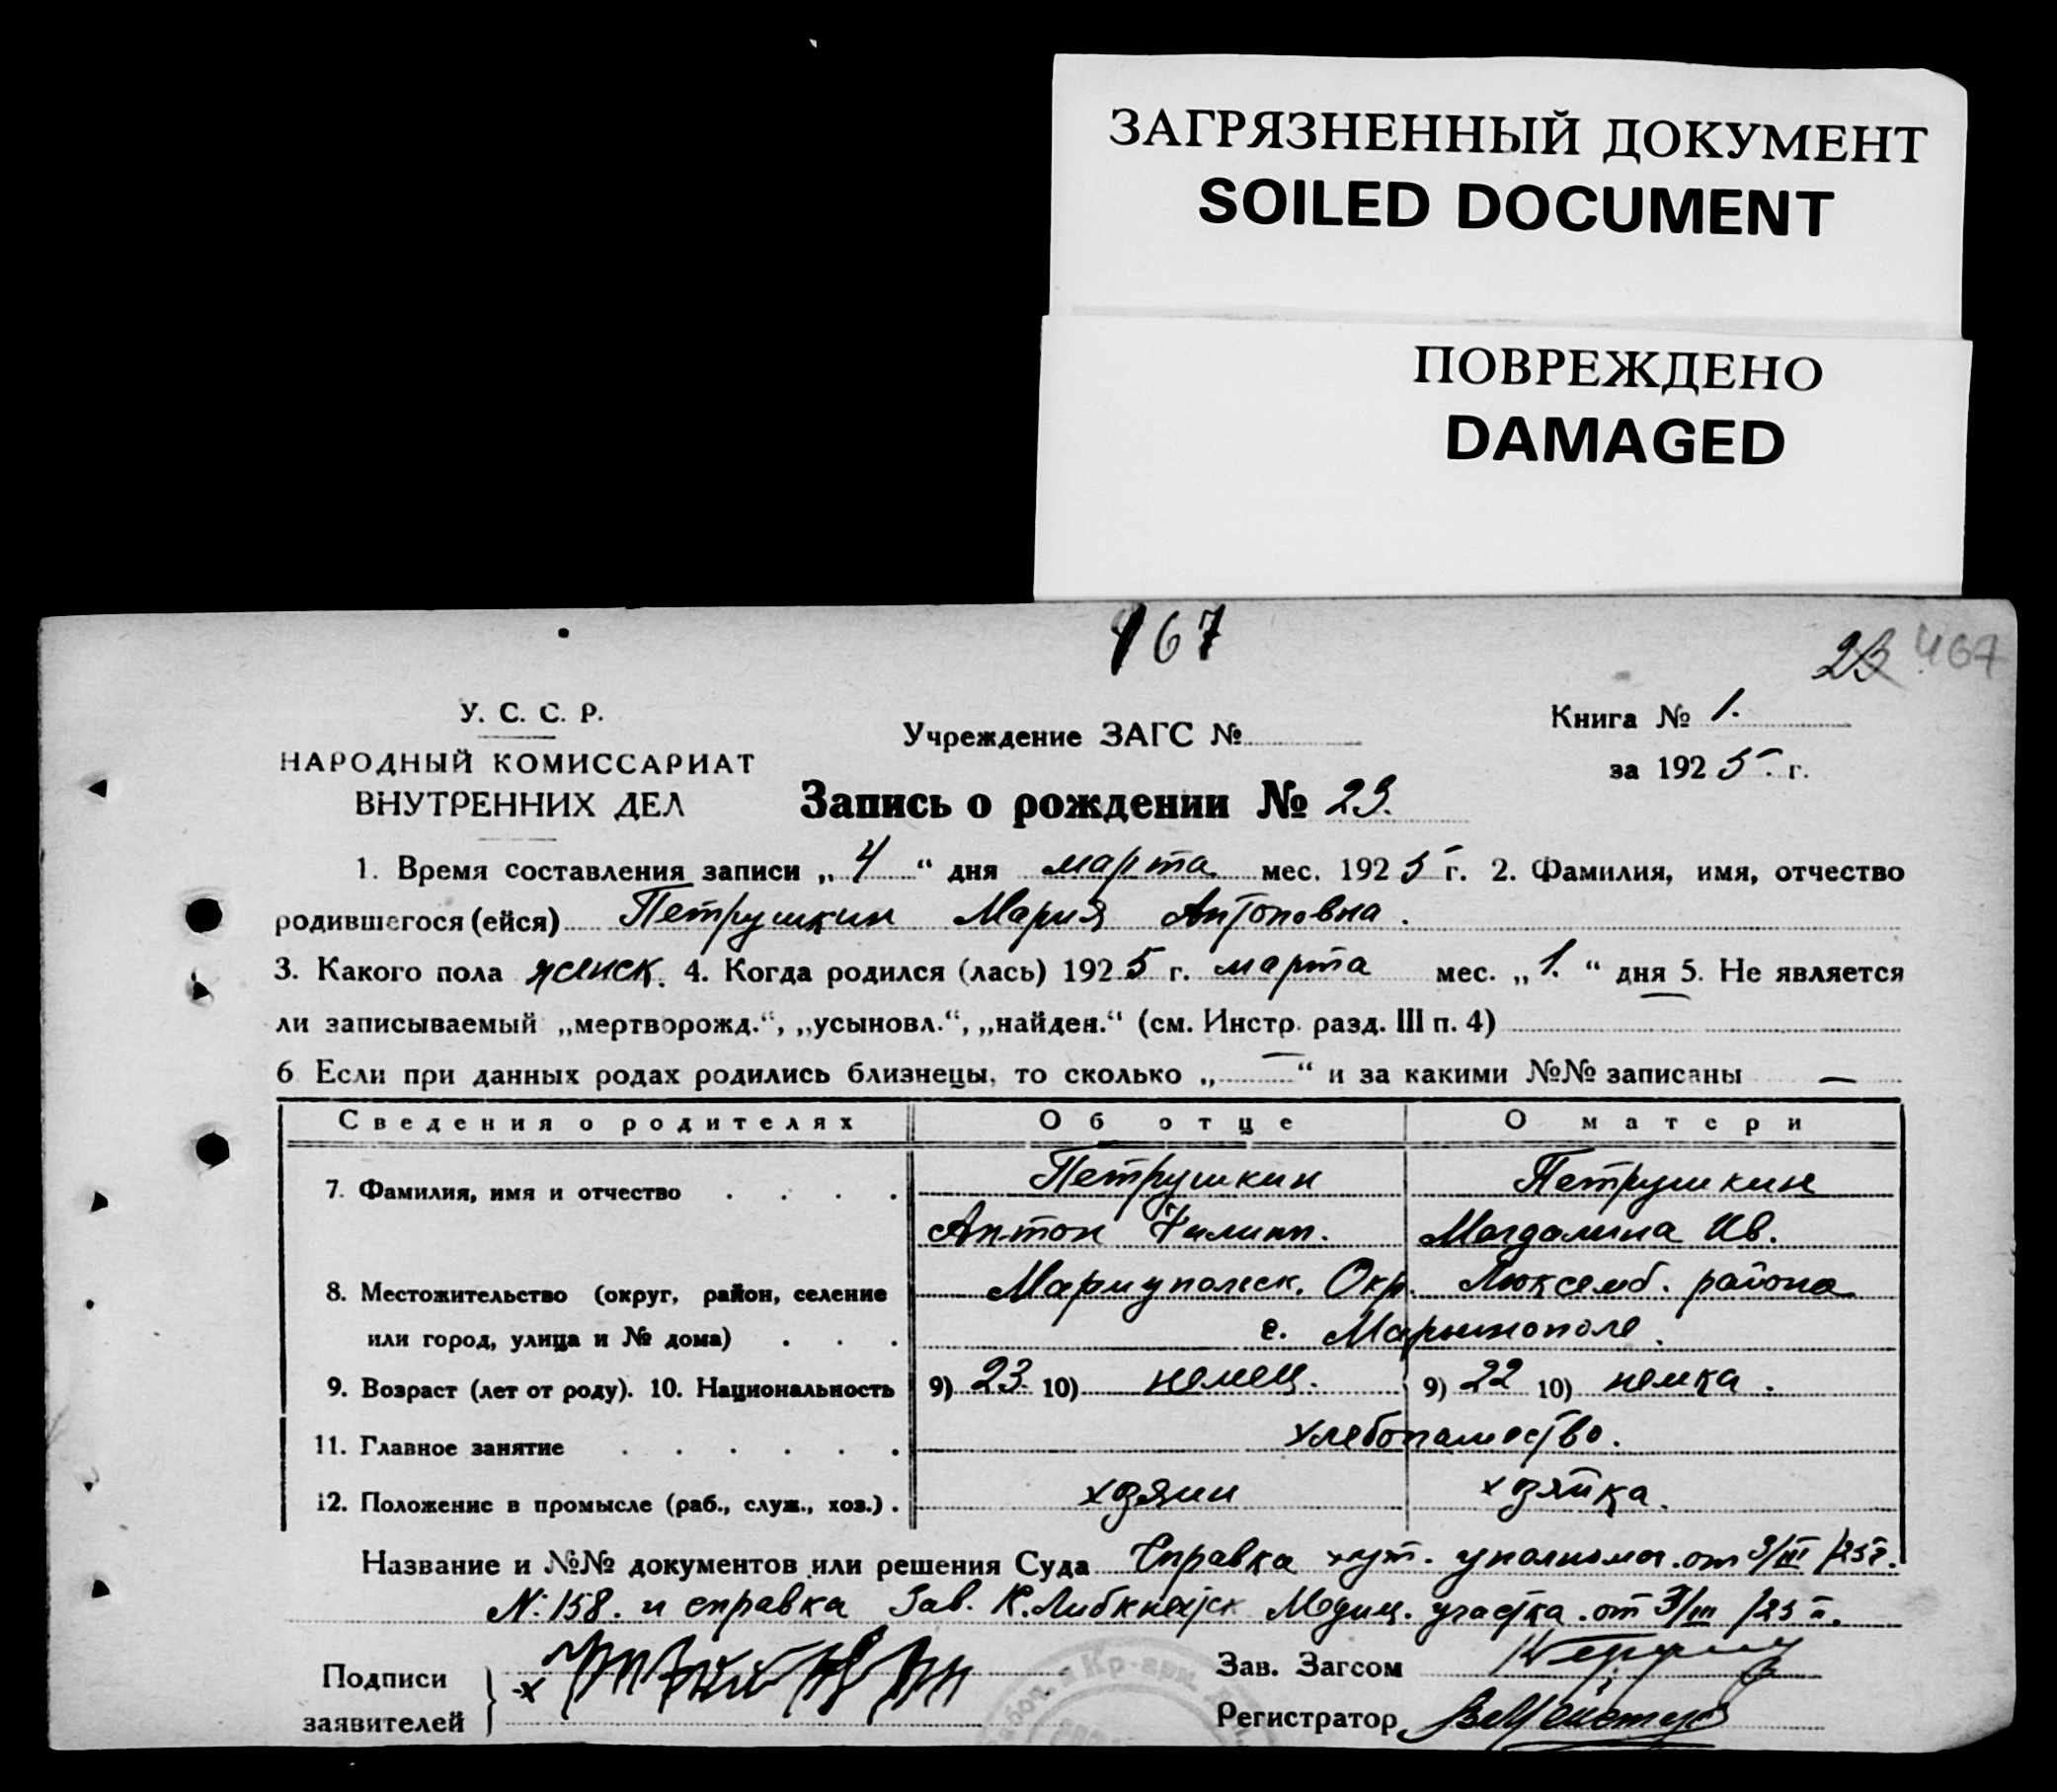 ЗАГРЯЗНЕННЫЙ ДОКУМЕНТ
SOILED DOCUMENT
ПОВРЕЖДЕНО
DAMAGED
467
23 467
У. С. С. Р.
НАРОДНЫЙ КОМИССАРИАТ
ВНУТРЕННИХ ДЕЛ
Учреждение ЗАГС №
Книга № 1.
за 1925 г.
Запись о рождении № 23.
1. Время составления записи „4“ дня марта мес. 1925 г. 2. Фамилия, имя, отчество
родившегося (ейся) Петрушкин Мария Антоновна.
3. Какого пола женск. 4. Когда родился (лась) 1925 г. марта мес. „1.“ дня 5. Не является
ли записываемый „мертворожд.“, „усыновл.“, „найден.“ (см. Инстр. разд. III п. 4) —
6 Если при данных родах родились близнецы, то сколько „—“ и за какими №№ записаны —
Сведения о родителях Об отце О матери
7. Фамилия, имя и отчество . . . . Петрушкин Петрушкин
Антон Филипп. Магдалина Ив.
8. Местожительство (округ, район, селение Мариупольск. Окр. Люксемб. района
или город, улица и № дома) . . . с. Марьинополе.
9. Возраст (лет от роду). 10. Национальность 9) 23 10) немец. 9) 22 10) немка.
11. Главное занятие . . . . . . хлебопашество.
12. Положение в промысле (раб., служ., хоз.) . хозяин хозяйка.
Название и №№ документов или решения Суда Справка хут. уполномоч. от 3/III /25 г.
№ 158. и справка Зав. К. Либкнехтск Медиц. участка. от 3/III /25 г.
Подписи
заявителей
х
Зав. Загсом
Регистратор